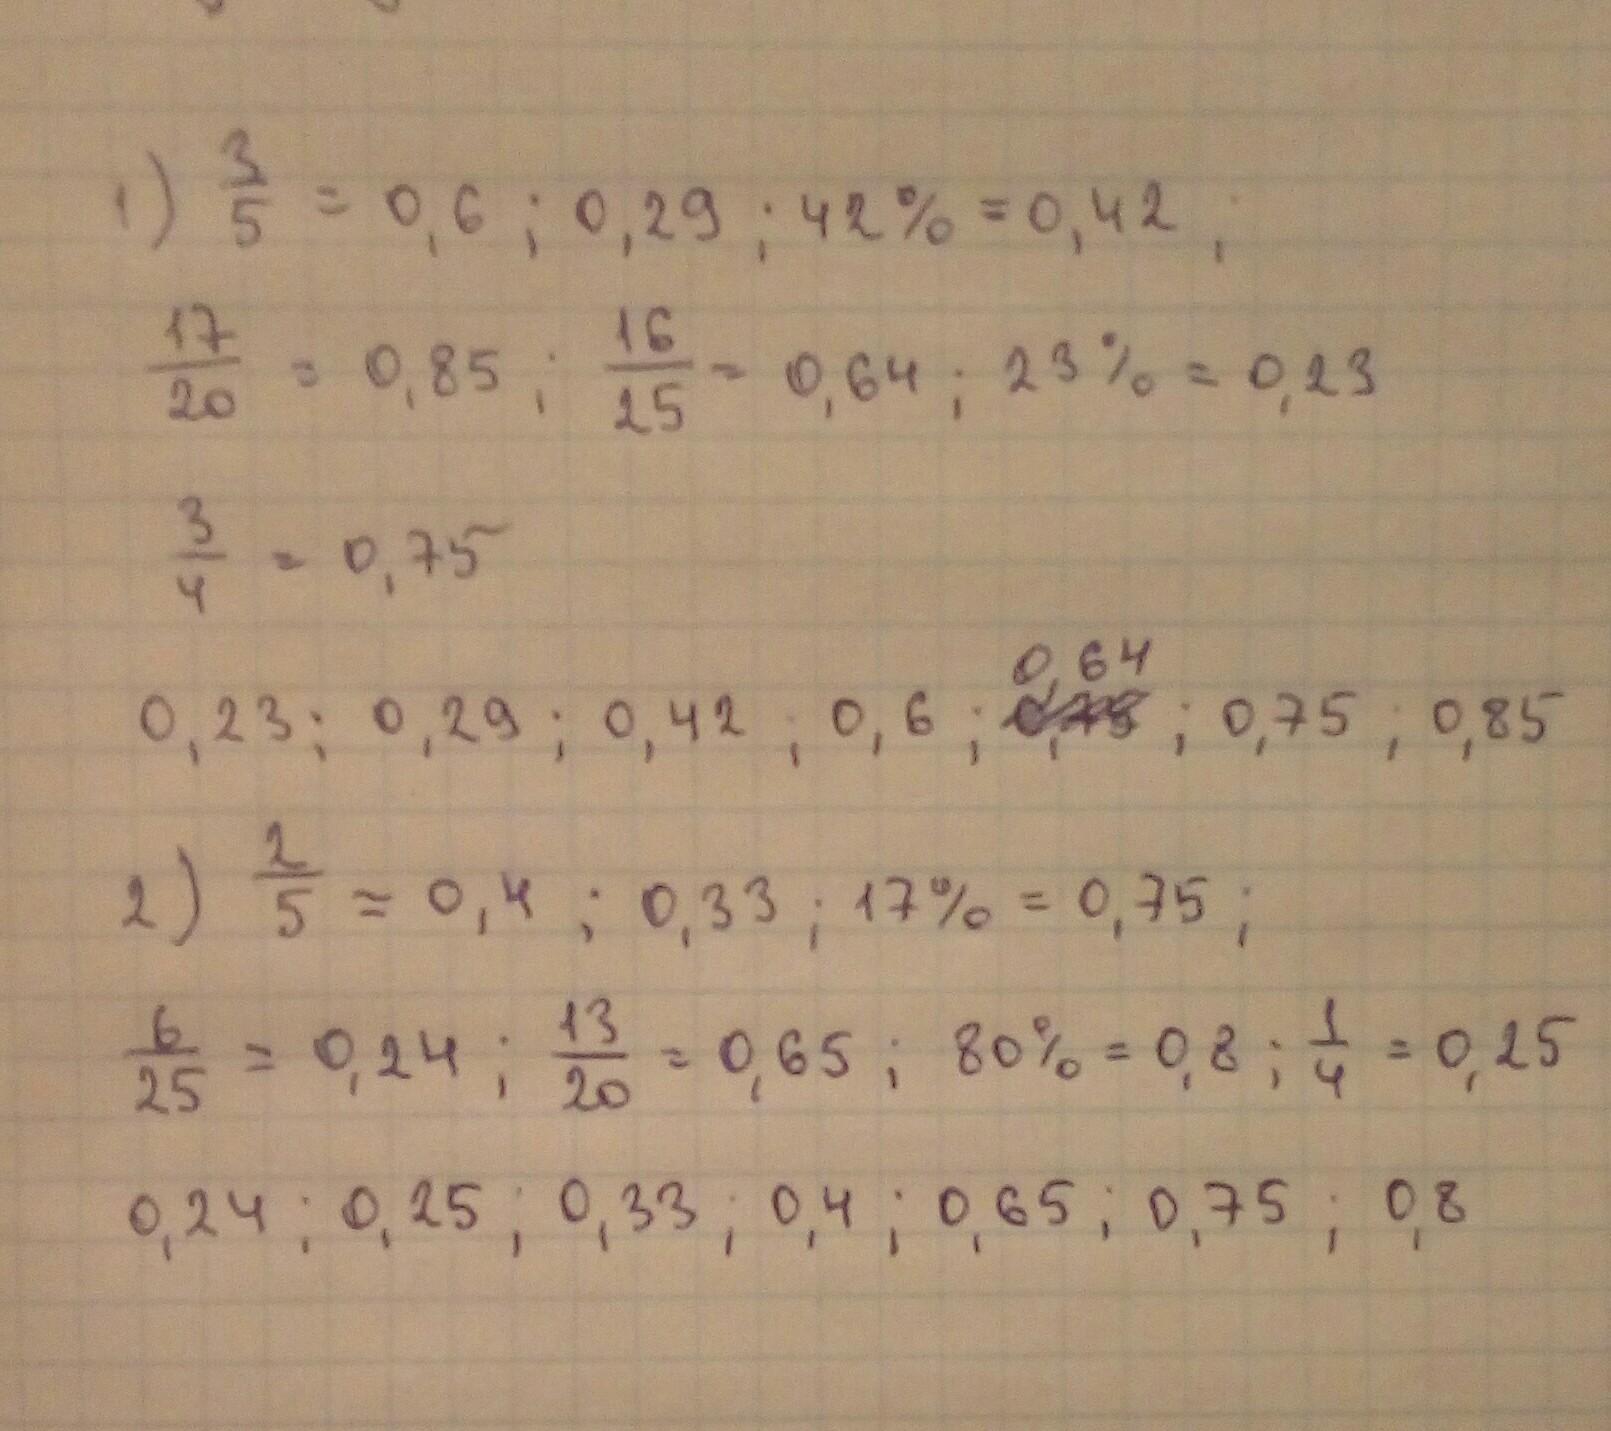 1) 3/5 = 0,6 ; 0,29 ; 42% = 0,42 ;
17/20 = 0,85 ; 16/25 = 0,64 ; 23% = 0,23
3/4 = 0,75
0,64
0,23 ; 0,29 ; 0,42 ; 0,6 ; 0,75 ; 0,75 ; 0,85
2) 2/5 = 0,4 ; 0,33 ; 17% = 0,75 ;
6/25 = 0,24 ; 13/20 = 0,65 ; 80% = 0,8 ; 1/4 = 0,25
0,24 ; 0,25 ; 0,33 ; 0,4 ; 0,65 ; 0,75 ; 0,8